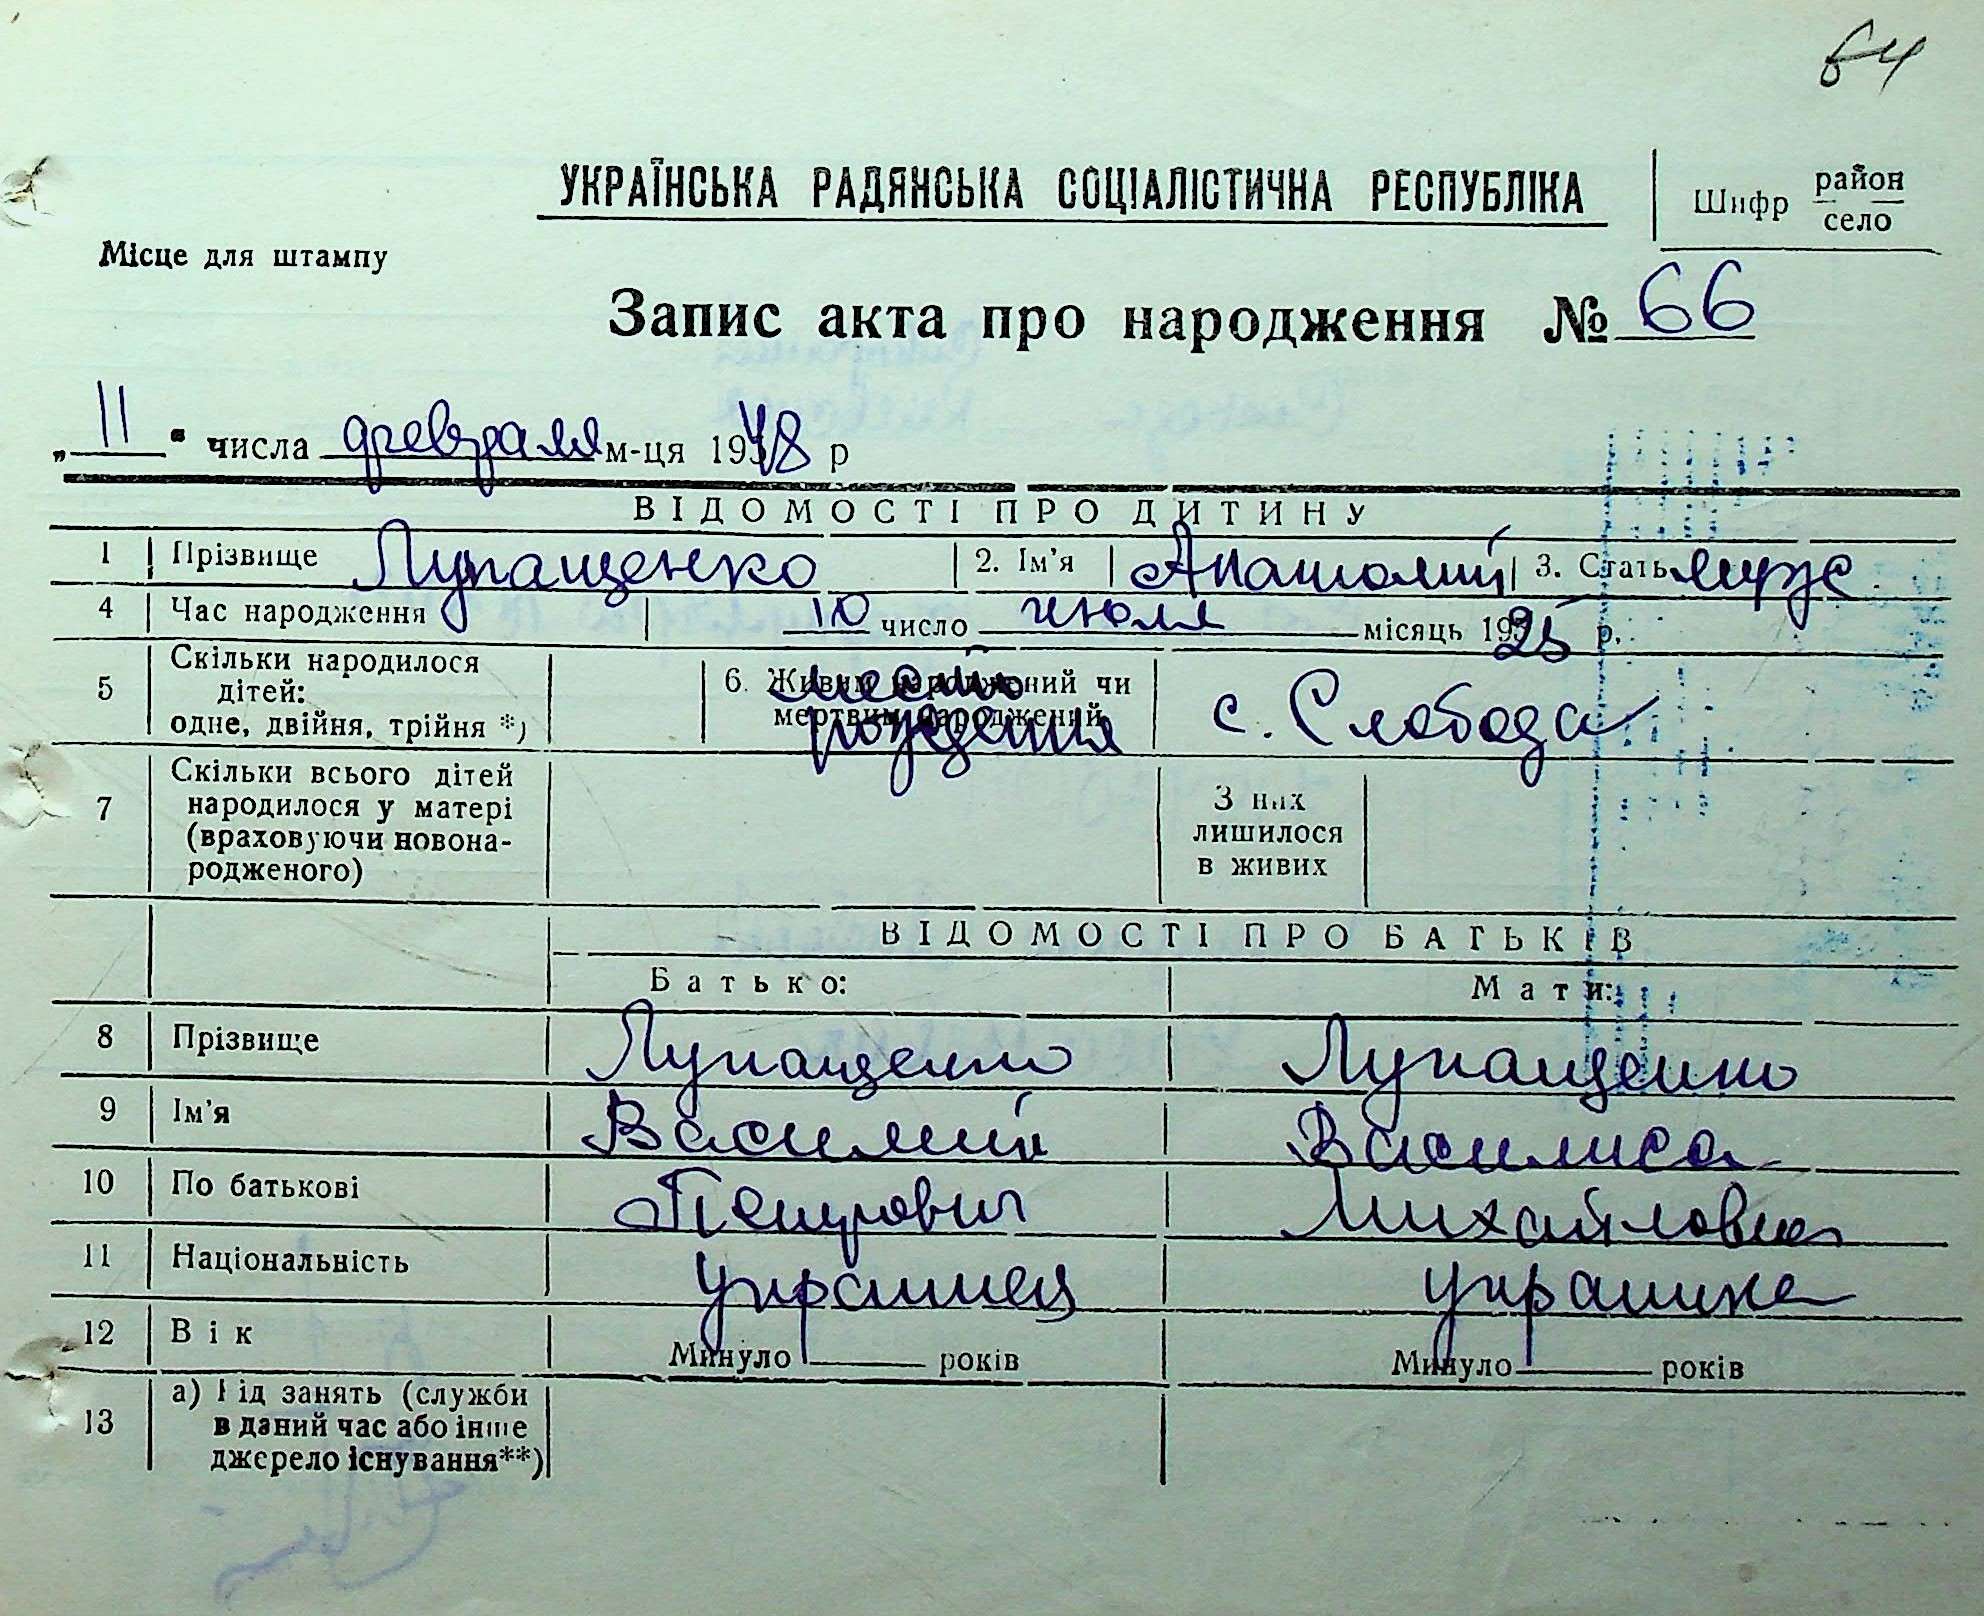 64
УКРАЇНСЬКА РАДЯНСЬКА СОЦІАЛІСТИЧНА РЕСПУБЛІКА
Шифр район
село
Місце для штампу
Запис акта про народження № 66
„ 11 " числа февраля м-ця 1948 р
ВІДОМОСТІ ПРО ДИТИНУ
1 Прізвище Лупащенко 2. Ім'я Анатолий 3. Стать муж.
4 Час народження 10 число июля місяць 1925 р.
5 Скільки народилося дітей: одне, двійня, трійня *)
6. Живим народжений чи мертвим народжений
место рождения
с. Слобода
7 Скільки всього дітей народилося у матері (враховуючи новона-родженого)
З них лишилося в живих
ВІДОМОСТІ ПРО БАТЬКІВ
Батько: Мати:
8 Прізвище Лупащенко Лупащенко
9 Ім'я Василий Василиса
10 По батькові Петрович Михайловна
11 Національність украинец украинка
12 Вік Минуло років Минуло років
13 а) Рід занять (служби
в даний час або інше
джерело існування**)